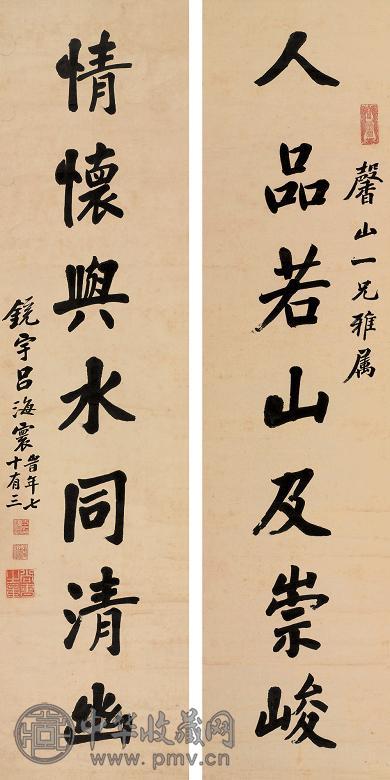 馨山一兄雅属
人品若山及崇峻
情懷與水同清幽
鏡宇吕海寰旹年七
十有三
中华收藏网
www.pmv.cn